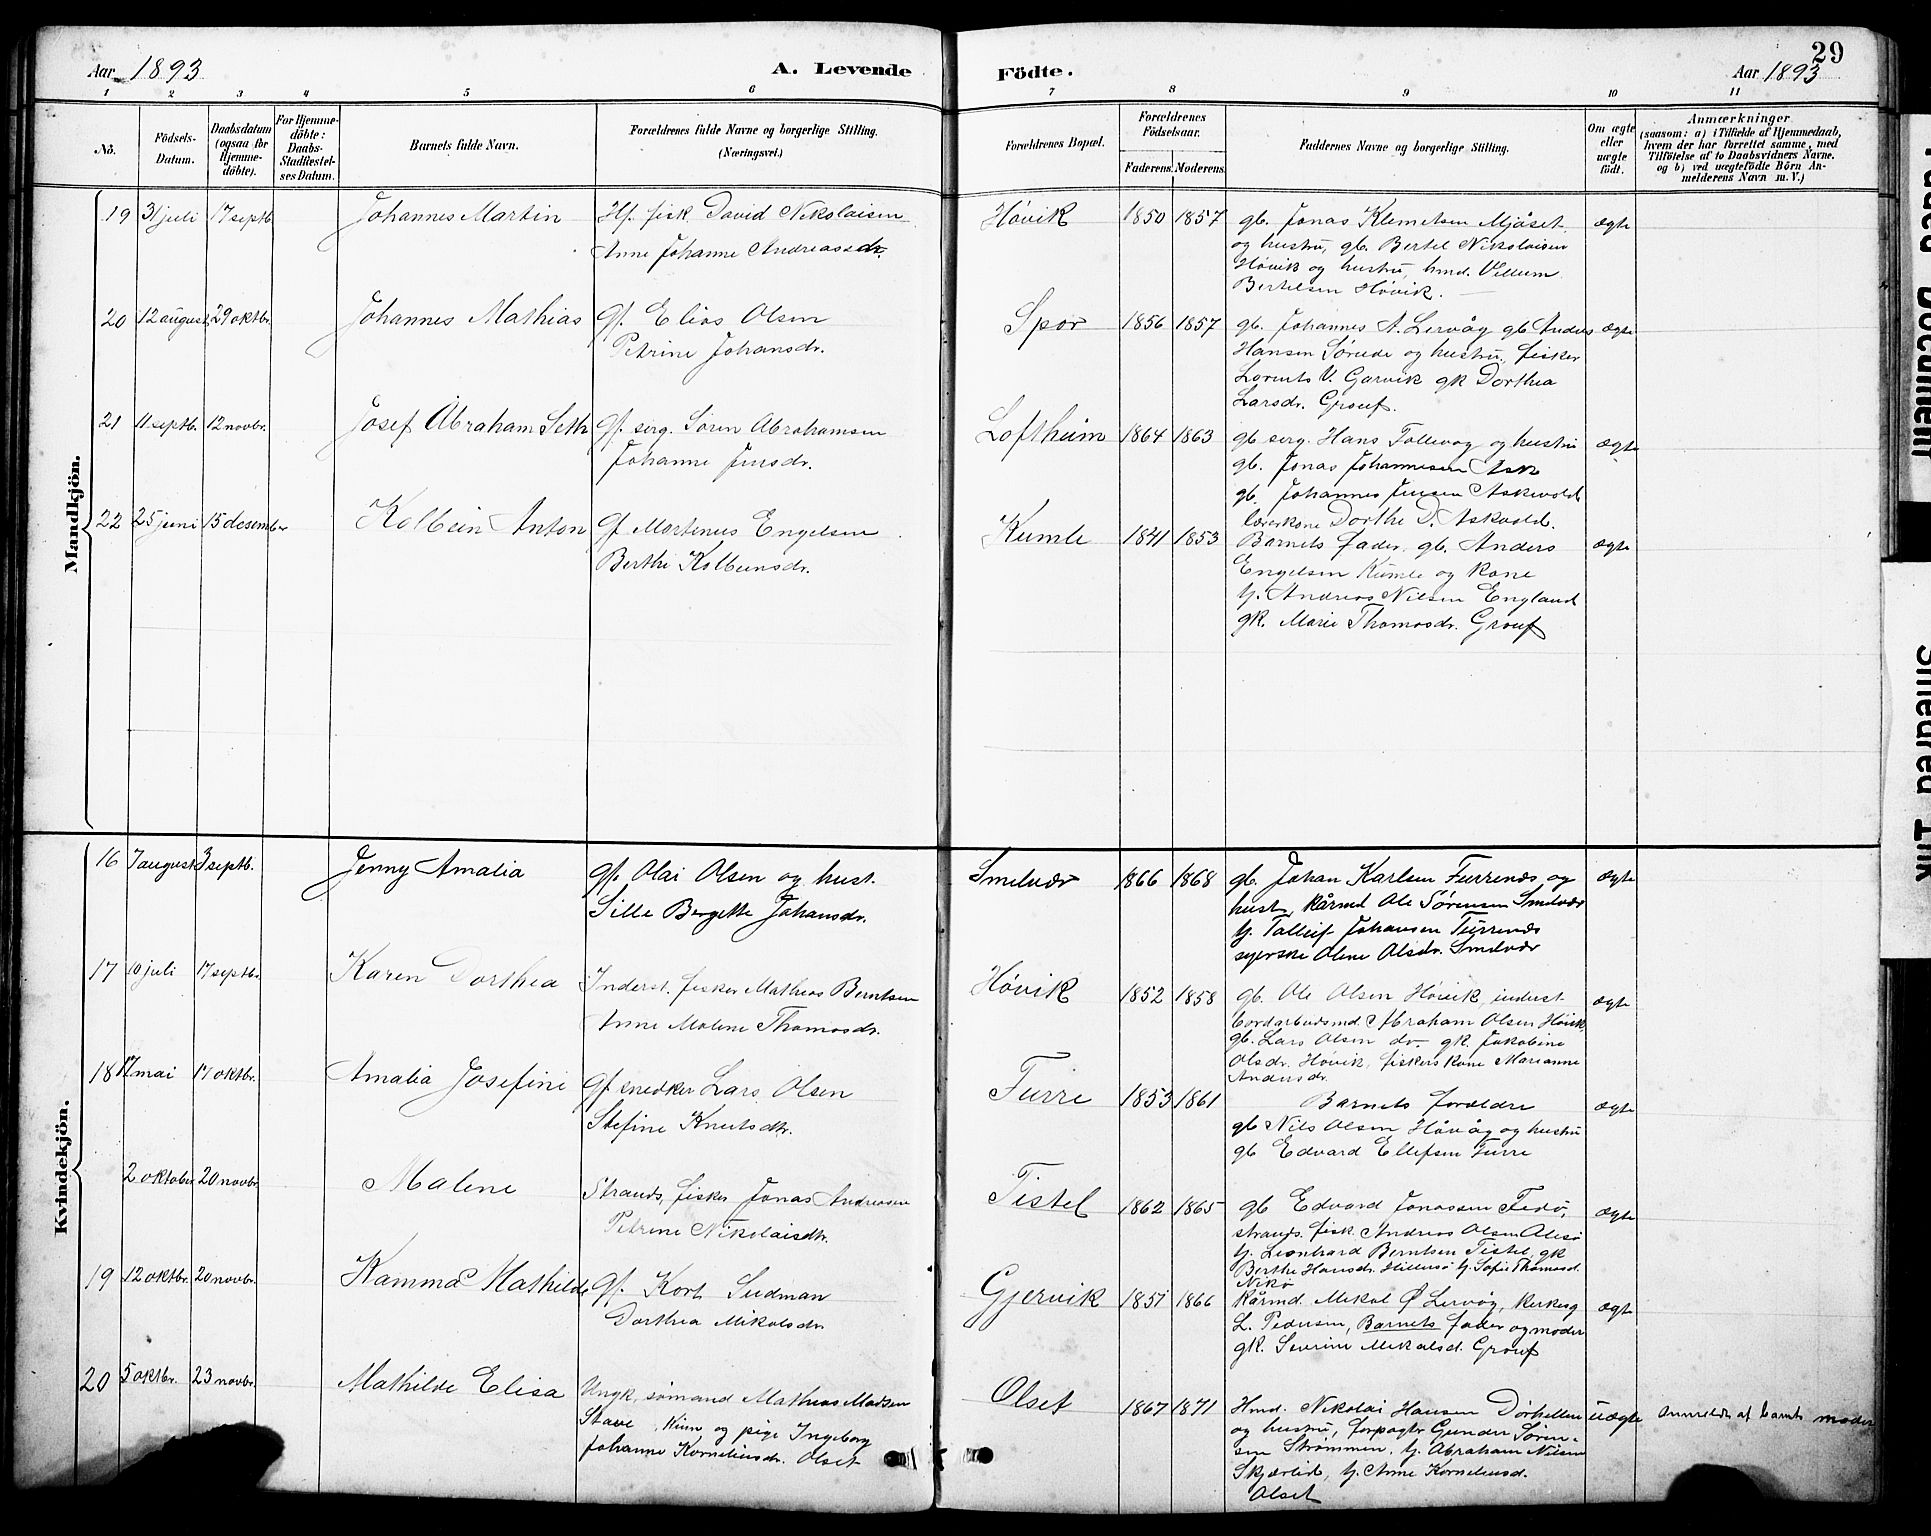 29
Aar 1893 A. Levende Födte. Aar 1893
1 2 3 4 5 6 7 8 9 10 11
No.
Födsels-
Datum.
Daabsdatum
(ogsaa for
Hjemme-
döbte).
For Hjemme-
döbte:
Daabs-
Stadfæstel-
ses Datum.
Barnets fulde Navn.
Forældrenes fulde Navne og borgerlige Stilling.
(Næringsvei.)
Forældrenes Bopæl.
Forældrenes
Födselsaar.
Faderens. Moderens.
Faddernes Navne og borgerlige Stilling.
Om ægte
eller
uægte
födt.
Anmærkninger
(saasom: a) i Tilfælde af Hjemmedaab,
hvem der har forrettet samme, med
Tilföielse af to Daabsvidners Navne.
og b) ved uægtefödte Börn An-
melderens Navn m. V.)
Mandkjön.
19 31 juli 17 septb. Johannes Martin Hf. fisk. David Nikolaisen
Anne Johanne Andreasdr.
Høvik 1850 1857 gb. Jonas Klemetsen Mjåset ægte
og hustru, gb. Bertel Nikolaisen
Høvik og hustru, hmd. Villum
Bertelsen Høvik.
20 12 august 29 oktbr. Johannes Mathias Gf. Elias Olsen
Petrine Johansdr.
Spor 1856 1857 gb. Johannes A. Lervåg gb Anders ægte
Hansen Sørude og hustru, fisker
Lorents V. Garvik gk Dorthea
Larsdr. Grouf.
21 11 septb. 12 novbr. Josef Abraham Seth Gf. serg. Søren Abrahamsen
Johanne Jensdr.
Loftheim 1864 1863 gb serg. Hans Tollevag og hustru ægte
gb. Jonas Johannesen Ask
gb. Johannes Jensen Askevold
lærerkone Dorthe D. Askvold.
22 25 juni 15 desember Kolbein Anton Gf Martenus Engelsen
Berthe Kolbeinsdr.
Kumle 1841 1853 Barnets fader, gb. Anders ægte
Engelsen Kumle og kone
Andreas Nilsen England
gk. Marie Thomasdr. Grouf
Kvindekjön.
16 7 august 3 septb. Jenny Amalia Gf. Olai Olsen og hust.
Sille Bergette Johansdr.
Smelvær 1866 1868 gb. Johan Karlsen Furrenes og ægte
hust, kårmd Ole Sørensen Smelvær
Tolleif Johansen Furrenes
syerske Olene Olsdr. Smelvær
17 10 juli 17 septbr. Karen Dorthea Inderst. fisker Mathias Berntsen
Anne Malene Thomasdr.
Høvik 1852 1858 gb. Ole Olsen Høvik, inderst ægte
Abraham Olsen Høvik
gb. Lars Olsen do. gk. Jakobine
Olsdr. Høvik, fiskers kone Marianne
Andersdr.
18 17 mai 17 oktbr. Amalia Josefine Gf snedker Lars Olsen
Stefine Knutsdtr.
Furre 1853 1861 Barnets forældre ægte
gb Nils Olsen Håvåg og hustru
gb Edvard Ellefsen Furre
2 oktober 20 novbr. Malene Strands. fisker Jonas Andreasen
Petrine Nikolaisdtr.
Tistel 1862 1865 gb Edvard Jonassen Fedø, ægte
strands. fisk. Andreas Olsen Alesø
Leonhard Berntsen Tistel, gk
Berthe Hansdr. Hillersø Sofie Thomasd
Nikø
19 12 oktbr. 20 novbr. Kamma Mathilde Gf. Kort Sudman
Dorthea Mikalsdr.
Gjervik 1851 1866 kårmd. Mikal Ø Lervåg, kirkesg ægte
L. Pedersen, Barnets fader og moder
gk. Severine Mikalsd. Grouf
20 5 oktbr. 23 novbr. Mathilde Elisa Ungk. sømand Mathias Madsen
Stave, Kinn og pige Ingeborg
Johanne Korneliusdr. Olset
Olset 1867 1871 Hmd. Nikolai Hansen Dørhellen uægte Anmeldt af barnets moder
og hustru, forpagtr Gunder Søren-
sen Strømmen, Abraham Nilsen
Skjærlid, Anne Korneliusd.
Olset
Faded Document
Smeared Ink